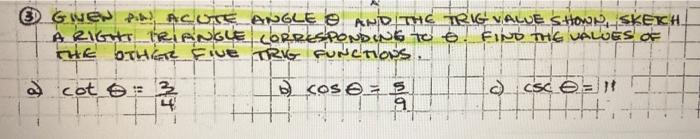 ③ GIVEN AN ACUTE ANGLE θ AND THE TRIG VALUE SHOWN, SKETCH
A RIGHT TRIANGLE CORRESPONDING TO θ. FIND THE VALUES OF
THE OTHER FIVE TRIG FUNCTIONS.
a) cot θ = 3/4 b) cos θ = 5/9 c) csc θ = 11